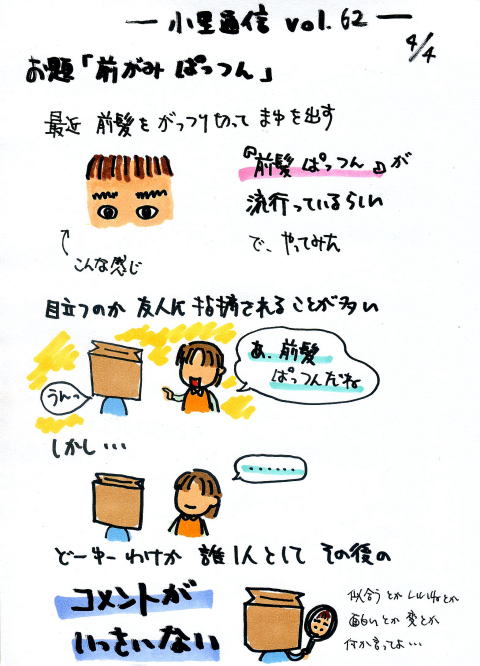 小里通信 vol.62
4/4
お題「前がみ ぱっつん」
最近 前髪を がっつり切って まゆを出す
『前髪 ぱっつん』が
流行っているらしい
で、やってみた
↑こんな感じ
目立つのか 友人に 指摘されることが多い
あ、前髪
ぱっつんだね
うんっ
しかし・・・
・・・・・・
どーゆーわけか 誰1人として その後の
コメントが
いっさいない
似合うとか いいねとか
面白いとか 変とか
何か言ってよ…